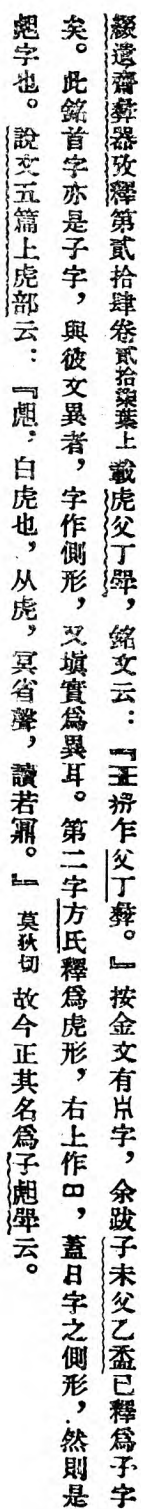 綴遺齋彝器攷釋第貳拾肆卷貳拾柒葉上載虎父丁斝，銘文云：『乍父丁彝。』按金文有字，余跋子未父乙盉已釋爲子字
矣。此銘首字亦是子字，與彼文異者，字作側形，又塡實爲異耳。第二字方氏釋爲虎形，右上作，蓋日字之側形，然則是
䖑字也。說文五篇上虎部云：『䖑，白虎也，从虎，冥省聲，讀若鼏。』莫狄切故今正其名爲子䖑斝云。